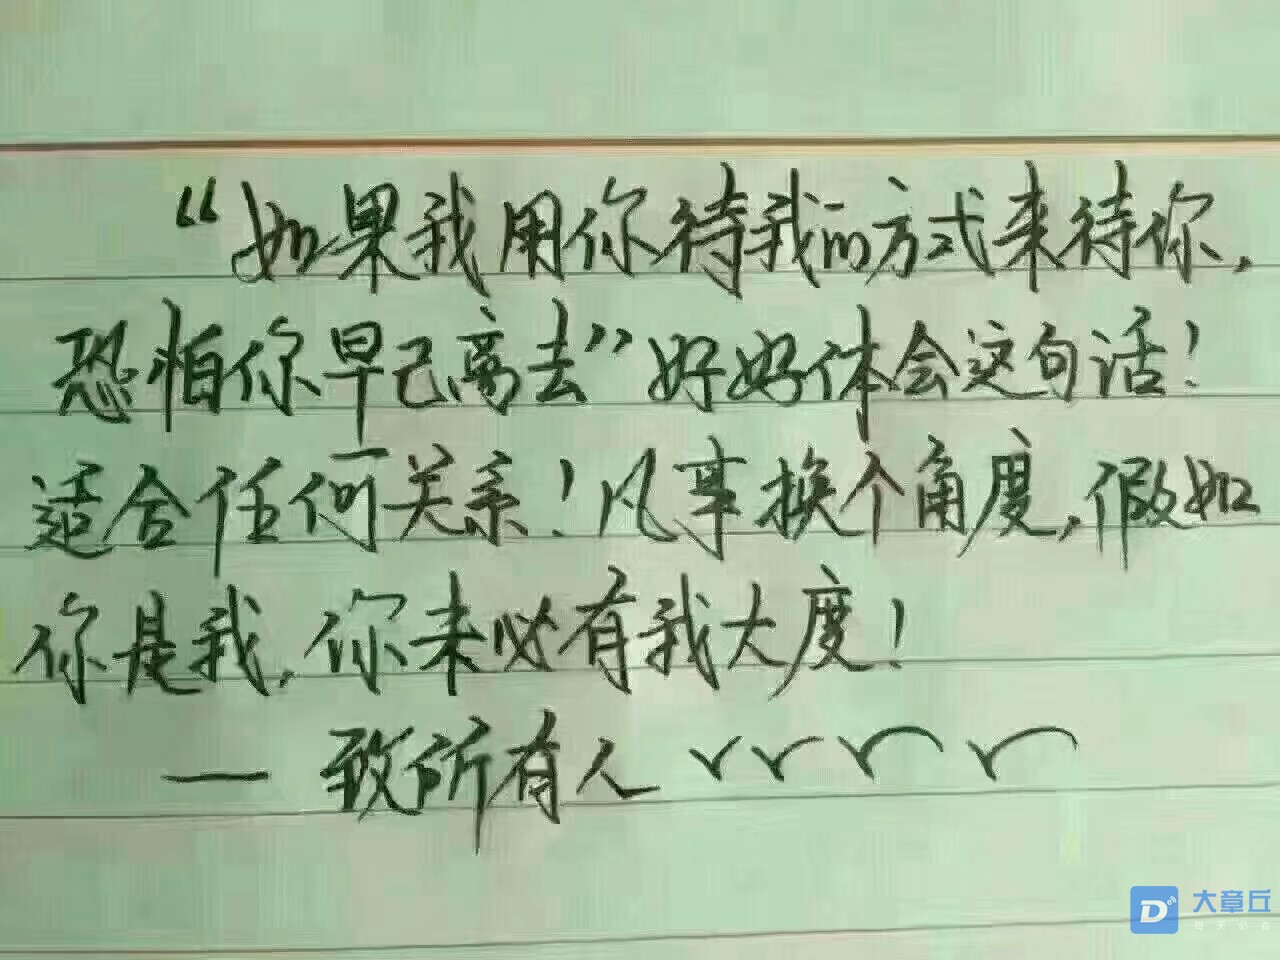 “如果我用你待我的方式来待你,
恐怕你早已离去”好好体会这句话!
适合任何关系!凡事换个角度,假如
你是我,你未必有我大度!
— 致所有人
大章丘